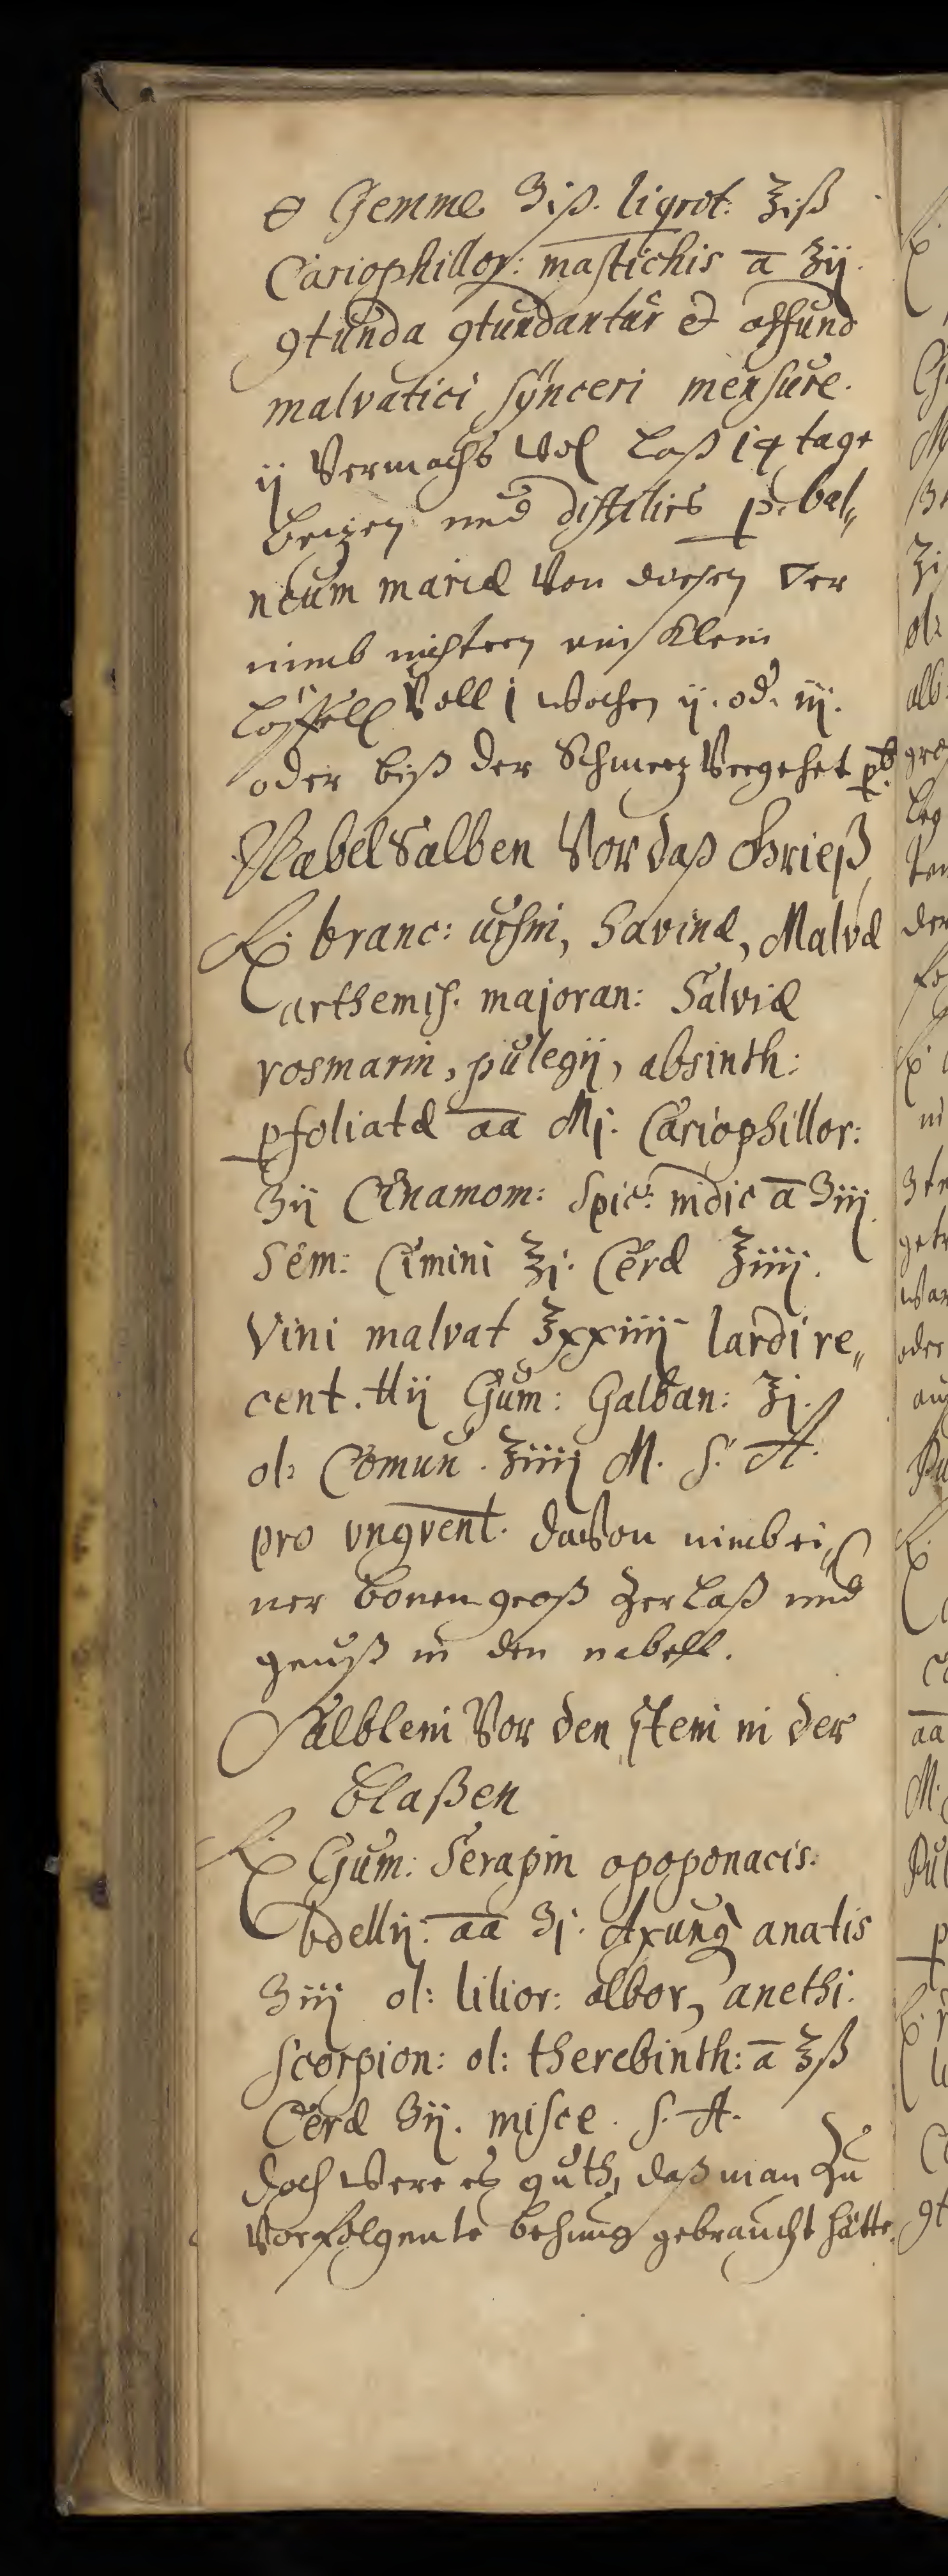 Gemme ʒiß. liqrit: ℥iß
Cariophillor: mastichis a ʒij
9tunda 9tundantur et affund
malvatici synceri mensure.
ij Vermachs Vol Laß 14 tage
beizen und distilirs p bal„
neum mariæ Von diesen ver
nimb nichtern ein Klein
Löffell Voll i wochen ij. od. iij.
oder biß der Schmerz Vergehet pb.
Nabel Salben Vor daß Grieß
℞. branc: ursin, Savinæ, Malvæ
arthemis. majoran: Salviæ
rosmarin, pulegij, absinth:
pfoliatæ aa Mj. Cariophillor:
ʒij Cinamom: Spicæ indic a ʒiij
Sem: Cimini ℥j. Ceræ ℥iiij.
Vini malvat ℥xxiiij lardi re„
cent. ℔ij Gum: Galban: ℥j.
ol: Comun. ℥iiij M. S. A.
pro ungvent. daVon nimb ei„
ner bonen groß Zerlaß und
geuß in den nabell.
Sälblein Vor den stein in der
blaßen
℞ Gum: Serapin opoponacis.
bdellij: aa ʒj. Axung anatis
ʒiij ol: lilior: albor, anethi.
scorpion: ol: therebinth: a ℥ß
Ceræ ʒij. misce. S. A.
doch Were es guth, daß man Zu
Vor folgente behung gebraucht hätte.